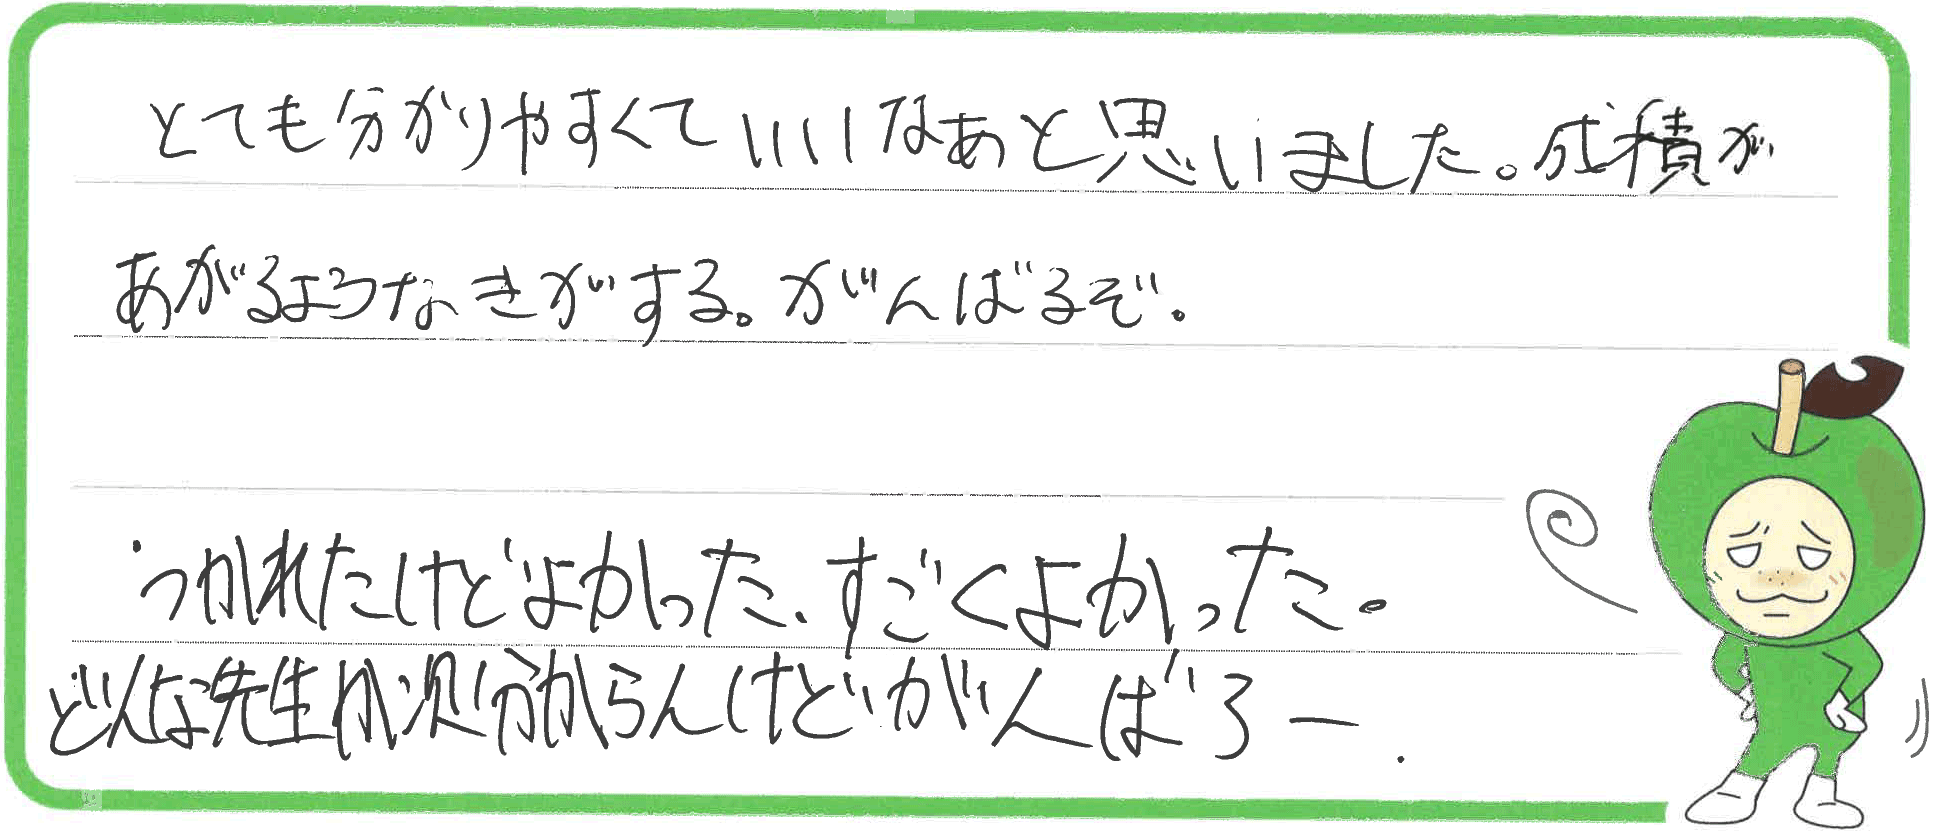 とても分かりやすくていいなあと思いました。成積が
あがるようなきがする。がんばるぞ。
つかれたけどよかった、すごくよかった。
どんな先生か次分からんけどがんばろー.